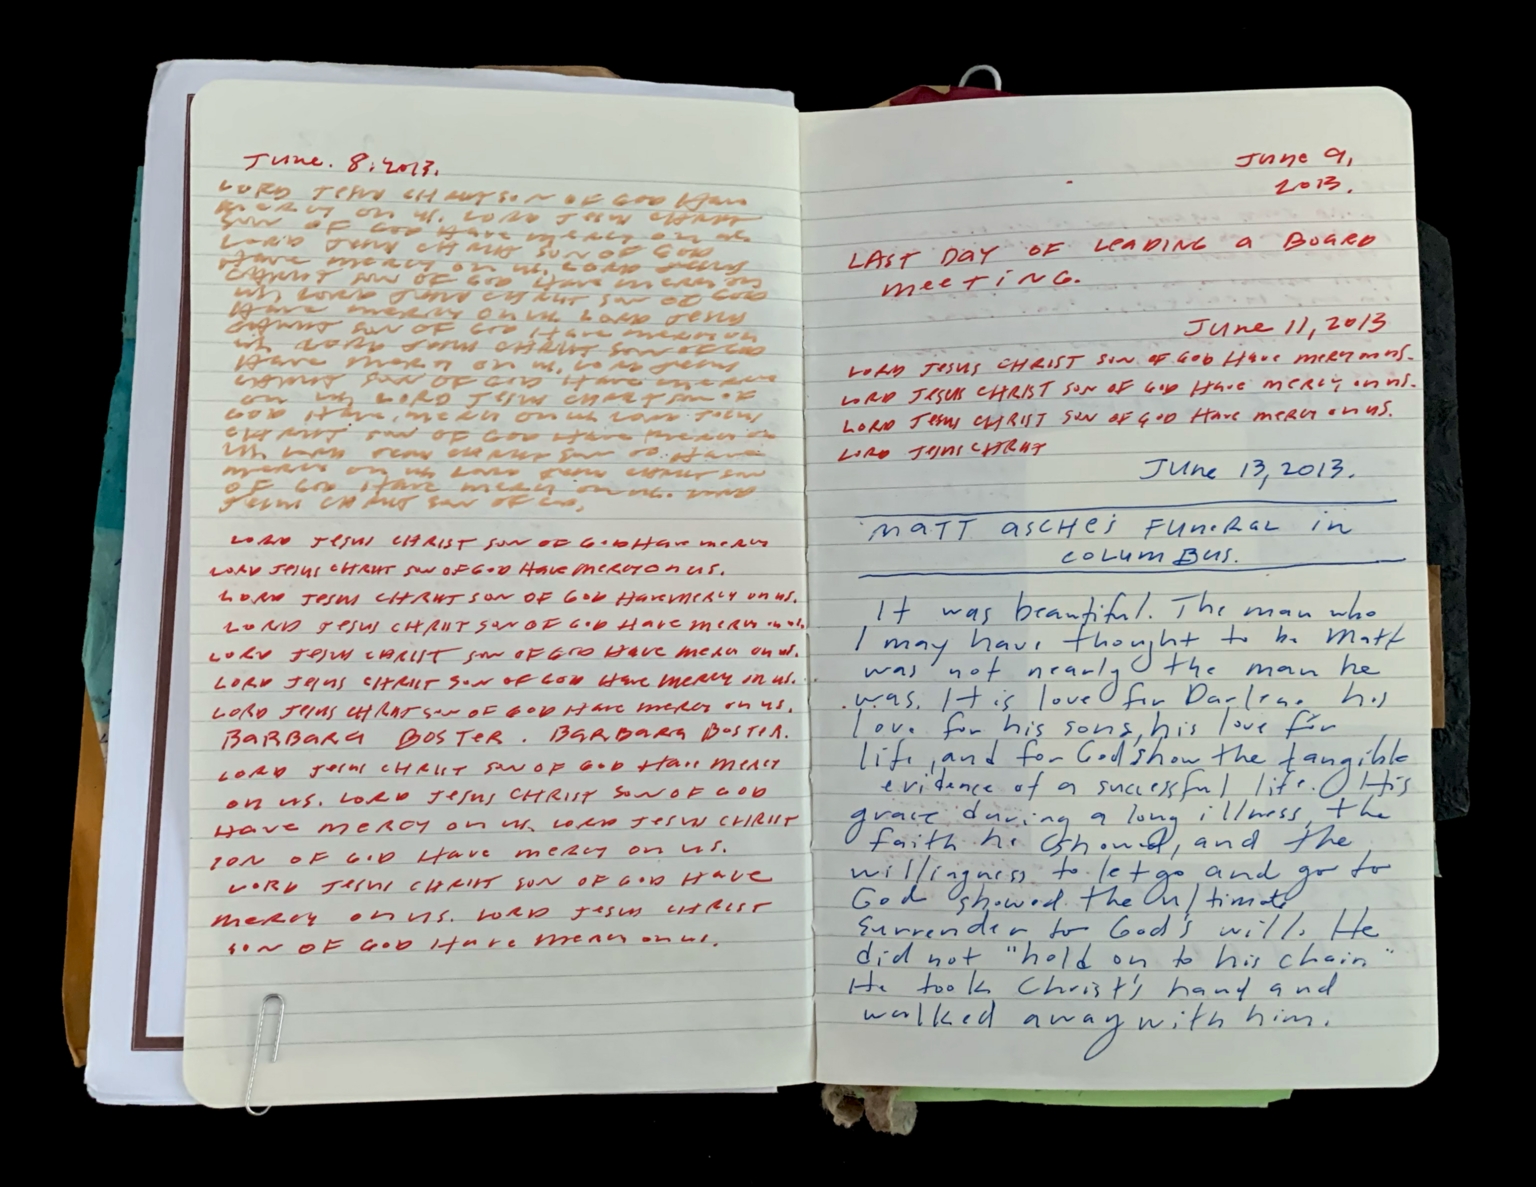 June. 8. 2013.
LORD JESUS CHRIST SON OF GOD Have
mercy on us. LORD JESUS CHRIST
SON OF GOD Have mercy on us.
LORD JESUS CHRIST SON OF GOD
Have mercy on us. LORD JESUS
CHRIST SON OF GOD Have mercy on
us. LORD JESUS CHRIST SON OF GOD
Have mercy on us. LORD JESUS
CHRIST SON OF GOD Have mercy on
us. LORD JESUS CHRIST SON OF GOD
Have mercy on us. LORD JESUS
CHRIST SON OF GOD Have mercy
on us. LORD JESUS CHRIST SON OF
GOD Have mercy on us. LORD JESUS
CHRIST SON OF GOD Have mercy on
us. LORD JESUS CHRIST SON Have
mercy on us. LORD JESUS CHRIST SON
OF GOD Have mercy on us. LORD
JESUS CHRIST SON OF GOD.
LORD JESUS CHRIST SON OF GOD Have mercy
LORD JESUS CHRIST SON OF GOD Have mercy on us.
LORD JESUS CHRIST SON OF GOD Have mercy on us.
LORD JESUS CHRIST SON OF GOD Have mercy on us.
LORD JESUS CHRIST SON OF GOD Have mercy on us.
LORD JESUS CHRIST SON OF GOD Have mercy on us.
LORD JESUS CHRIST SON OF GOD Have mercy on us.
BARBARA BOSTER. BARBARA BOSTER.
LORD JESUS CHRIST SON OF GOD Have mercy
on us. LORD JESUS CHRIST SON OF GOD
Have mercy on us. LORD JESUS CHRIST
SON OF GOD Have mercy on us.
LORD JESUS CHRIST SON OF GOD Have
mercy on us. LORD JESUS CHRIST
SON OF GOD Have mercy on us.
June 9,
2013.
LAST DAY OF LEADING a BOARD
meeTING.
June 11, 2013
LORD JESUS CHRIST SON OF GOD Have mercy on us.
LORD JESUS CHRIST SON OF GOD Have mercy on us.
LORD JESUS CHRIST SON OF GOD Have mercy on us.
LORD JESUS CHRIST
June 13, 2013.
MATT ASCHE's FUNERAL in
COLUMBUS.
It was beautiful. The man who
I may have thought to be Matt
was not nearly the man he
was. It is love for Darlene his
love for his sons, his love for
life, and for God show the tangible
evidence of a successful life. His
grace during a long illness, the
faith he showed, and the
willingness to let go and go to
God showed the ultimate
surrender to God's will. He
did not "hold on to his chain"
He took Christ's hand and
walked away with him.